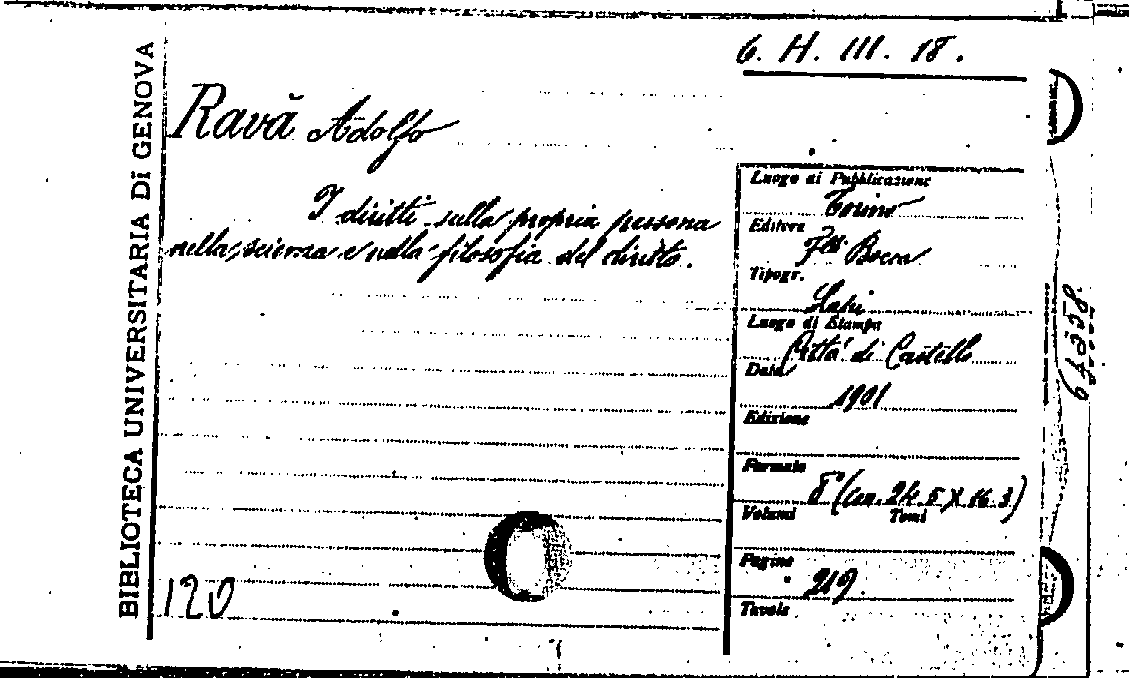 6. H. III. 18.
BIBLIOTECA UNIVERSITARIA DI GENOVA
Ravà Adolfo
I diritti sulla propria persona
nella scienza e nella filosofia del diritto.
Luogo di Pubblicazione
Torino
Editore
Flli Bocca
Tipogr.
Lapi
Luogo di Stampa
Città di Castello
Data
1901
Edizione
Formato
8° (cm. 24.5 X 16.3)
Volumi Tomi
Pagine
219.
Tavole
120